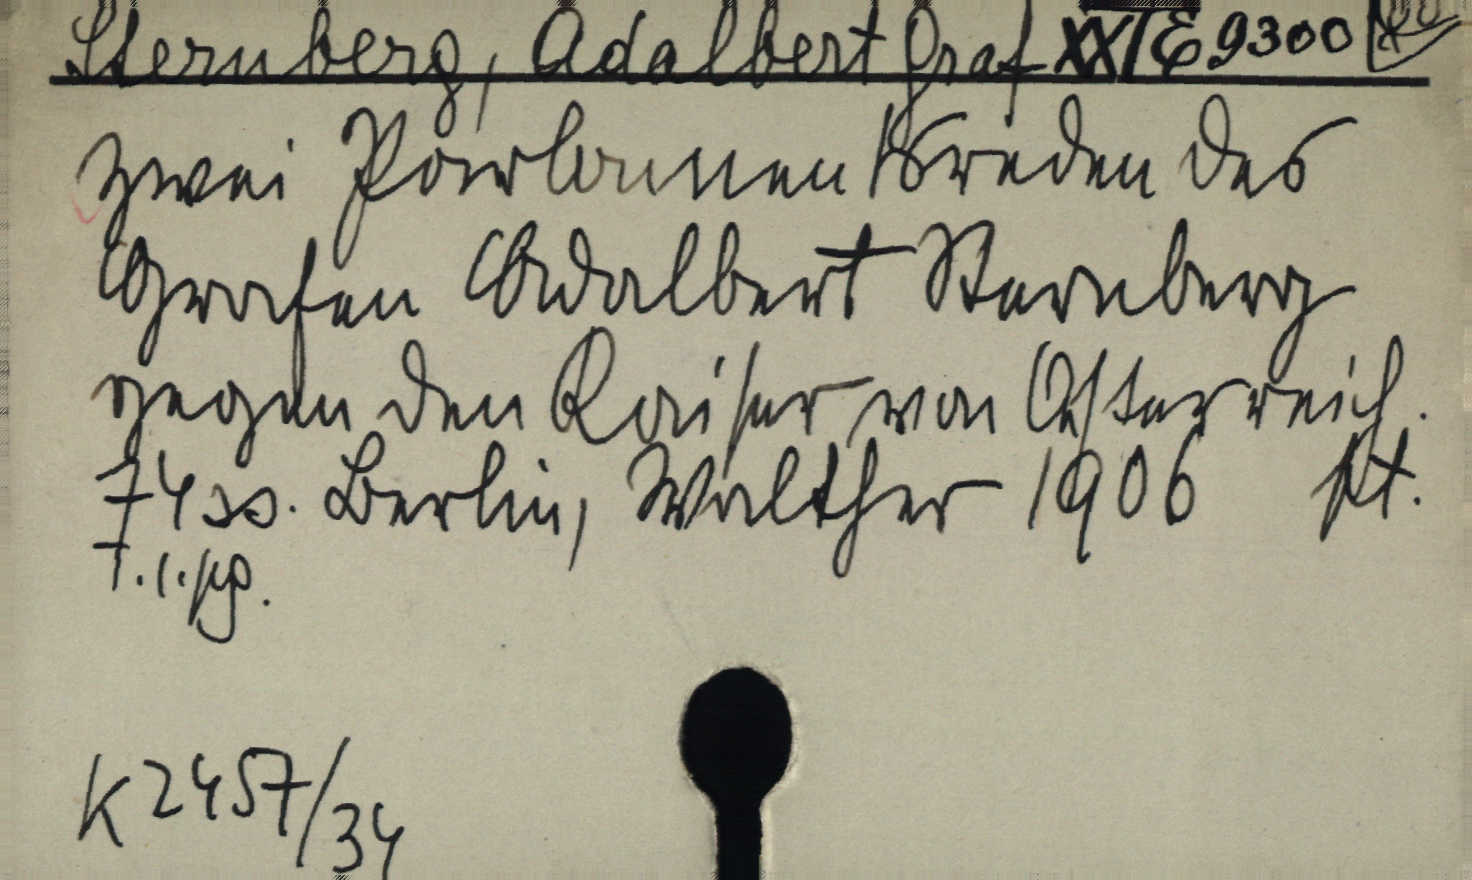 Sternberg, Adalbert Graf XXI E 9300
Zwei Parlamentsreden des
Grafen Adalbert Sternberg
gegen den Kaiser von Österreich.
74 ss. Berlin, Walther 1906 pt.
7.1.pg.
K 2457/34